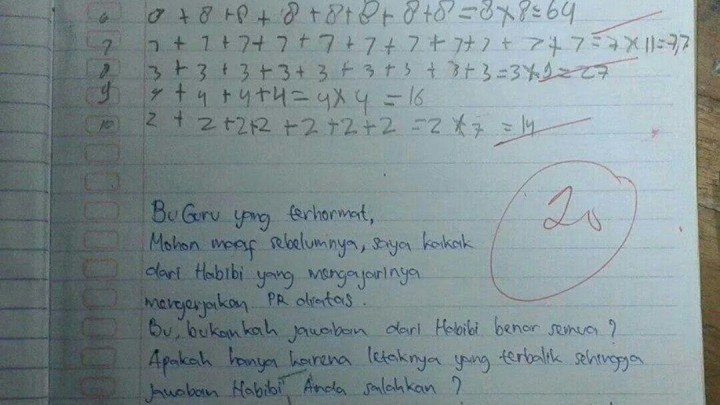 6 8 + 8 + 8 + 8 + 8 + 8 + 8 + 8 = 8 x 8 = 64
7 7 + 7 + 7 + 7 + 7 + 7 + 7 + 7 + 7 + 7 + 7 = 7 x 11 = 77
8 3 + 3 + 3 + 3 + 3 + 3 + 3 + 3 + 3 = 3 x 9 = 27
9 4 + 4 + 4 + 4 = 4 x 4 = 16
10 2 + 2 + 2 + 2 + 2 + 2 + 2 = 2 x 7 = 14
20
Bu Guru yang terhormat,
Mohon maaf sebelumnya, saya kakak
dari Habibi yang mengajarinya
mengerjakan PR diatas.
Bu, bukankah jawaban dari Habibi benar semua ?
Apakah hanya karena letaknya yang terbalik sehingga
jawaban Habibi Anda salahkan ?